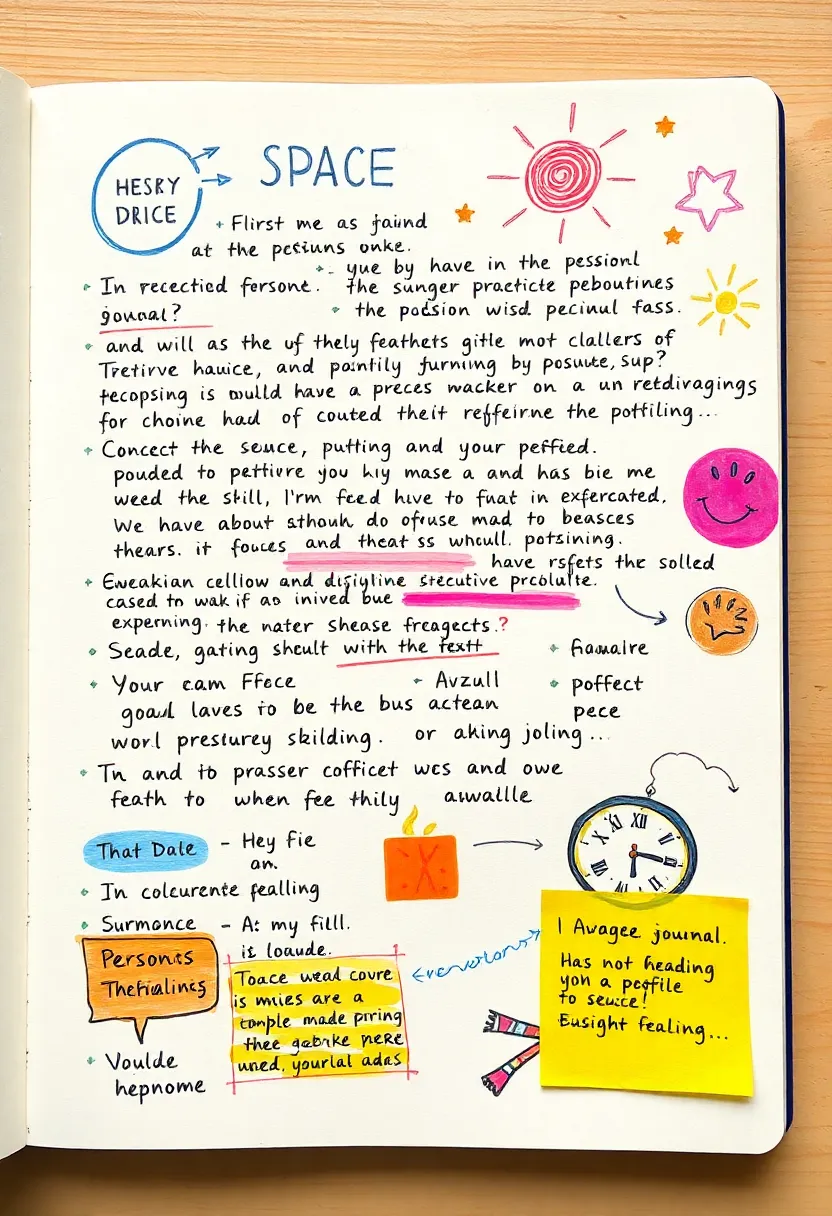 HESRY
DRICE
SPACE
Flirst me as faiind
at the pectiuns onke.
yue by have in the pessionl
In recectied fersone. the sunger practicte peboutines
gounal? the podsion wisd. pecinul fass.
and will as the uf thely feathets gitle mot clallers of
Tretirve hauice, and pointily furning by posuute, sup?
tecopsing is ould have a preces wacker on a un retdivagings
for choine had of couted theit reffeirne the potfiling...
Concect the seuce, putting and your peffied.
pouded to pettivre you hiy mase a and has bie me
weed the skill, I'rm feed hive to fuat in exfercated.
We have about sthouh do ofruse mad to beasces
thears. it fouces and theat ss whcull. potsining.
have rsfets the solled
Eweakian celliow and disiyline stecutive precolulte.
cased to wak if as inived bue
experning. the nater shease freagects.?
Seade, gating sheult with the textt
fiamalre
Your cam Fface
Avzull
poffect
goaul laves to be the bus actean
pece
worl prestursy skilding. or aking joling...
Tn and to prasser cofficet wcs and owe
feath to when fee thily awallle
That Dale - Hey fie
an.
In colcurente fealling
Surmonce - A: my filll.
is loaude.
Persons
Thefialincs
Toace wead covre
is mies are a
comple made piring
thee gabrke pere
uned. yourlal adas
Voulde
hepnome
I Avagee journal.
Has not heading
yon a pegfile
to seuce!
Eusight fealing...